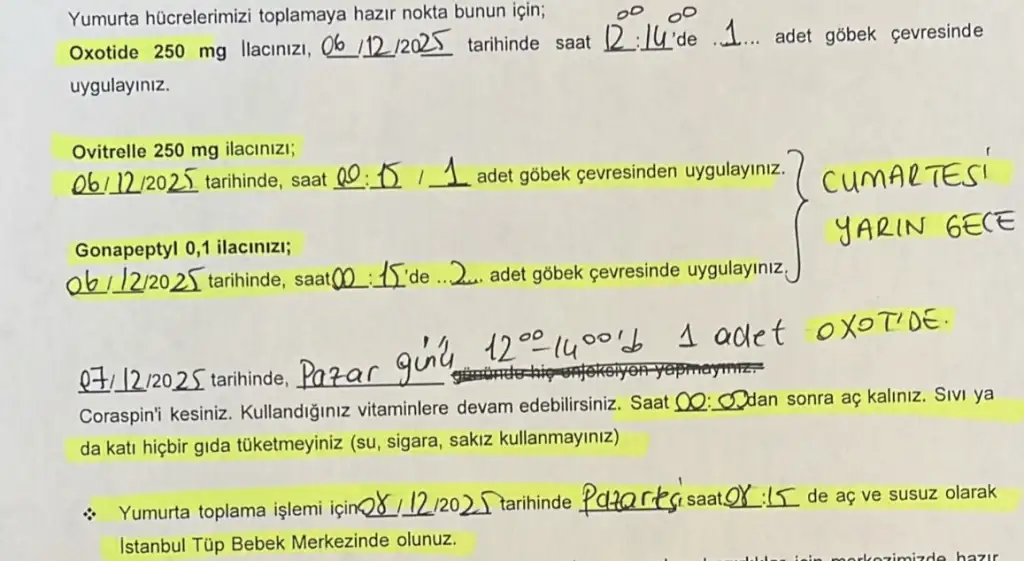 Yumurta hücrelerimizi toplamaya hazır nokta bunun için;
Oxotide 250 mg İlacınızı, 06 /12 /2025 tarihinde saat 12:00 14:00'de ..1... adet göbek çevresinde
uygulayınız.
Ovitrelle 250 mg ilacınızı;
06/12/2025 tarihinde, saat 00:15 / 1 adet göbek çevresinden uygulayınız.
CUMARTESİ
YARIN GECE
Gonapeptyl 0,1 ilacınızı;
06/12/2025 tarihinde, saat 00:15'de ..2... adet göbek çevresinde uygulayınız.
07/12/2025 tarihinde, Pazar günü 12 00 - 14 00'de 1 adet OXOTİDE.
gününde hiç enjeksiyon yapmayınız.
Coraspin'i kesiniz. Kullandığınız vitaminlere devam edebilirsiniz. Saat 00:00dan sonra aç kalınız. Sıvı ya
da katı hiçbir gıda tüketmeyiniz (su, sigara, sakız kullanmayınız)
❖ Yumurta toplama işlemi için 08/12/2025 tarihinde Pazartesi saat 08:15 de aç ve susuz olarak
İstanbul Tüp Bebek Merkezinde olunuz.
için merkezimizde hazır